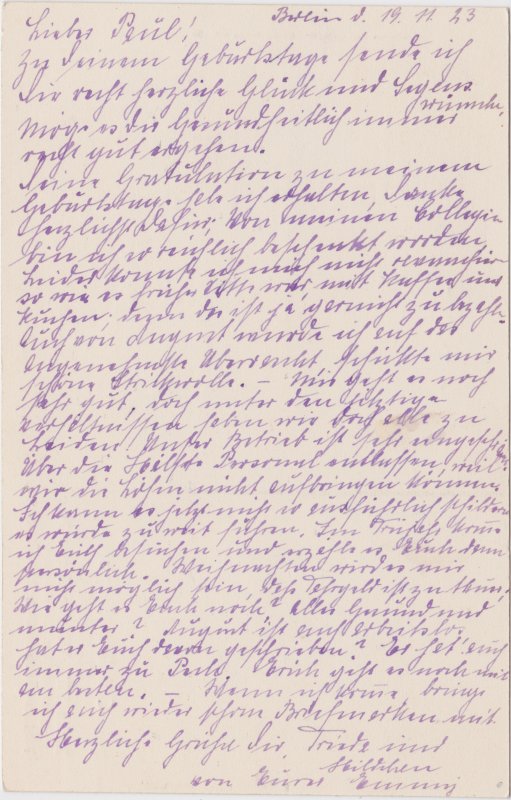 Berlin d. 19. 11. 23
Lieber Paul!
Zu Deinem Geburtstage sende ich
Dir recht herzliche Glück und Segens
wünsche,
Möge es Dir Gesundheitlich immer
recht gut ergehen.
Deine Gratulation zu meinem
Geburtstage habe ich erhalten, danke
herzlichst dafür. Von meinen Collegin
bin ich so reichlich beschenkt worden,
Leider konnte ich mich nicht revanchier
so wie es früher Sitte war mit Kaffee und
Kuchen, denn das ist ja garnicht zu bezahl.
Auch von August wurde ich auf das
angenehmste überrascht, schickte mir
schöne Strickwolle. — Mir geht es noch
sehr gut, doch unter den jetzigen
Verhältnissen haben wir doch alle zu
Leiden. Unser Betrieb ist sehr eingeschr
über die Hälfte Personal entlassen, weil
wir die Löhne nicht aufbringen können.
Ich kann es jetzt nicht so ausführlich schildern
es würde zu weit führen. Im Frühjahr komme
ich Euch besuchen und erzähle es Euch dann
persönlich. Weihnachten wird es mir
nicht möglich sein, das Fahrgeld ist zu teuer.
Wie geht es Euch noch? Alles Gesund und
munter? August ist auch arbeitslos
hat er Euch davon geschrieben? Er hat auch
immer zu Pech. Erich geht es noch mit
am besten. — Wenn ich komme, bringe
ich auch wieder schöne Briefmarken mit
Herzliche Grüße Dir, Friede und
Hildchen
von Eurer Emmy